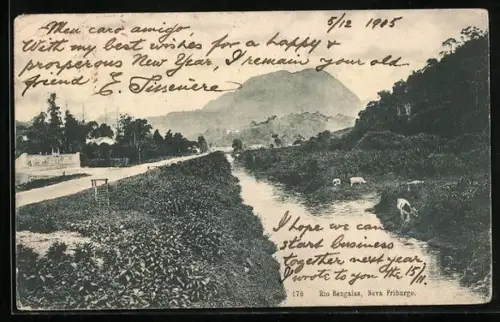 5/12 1905
Meu caro amigo,
With my best wishes for a happy &
prosperous New Year, I remain your old
friend E.
I hope we can
start business
together next year,
I wrote to you the 15/11.
176 Rio Bengalas, Nova Friburgo.